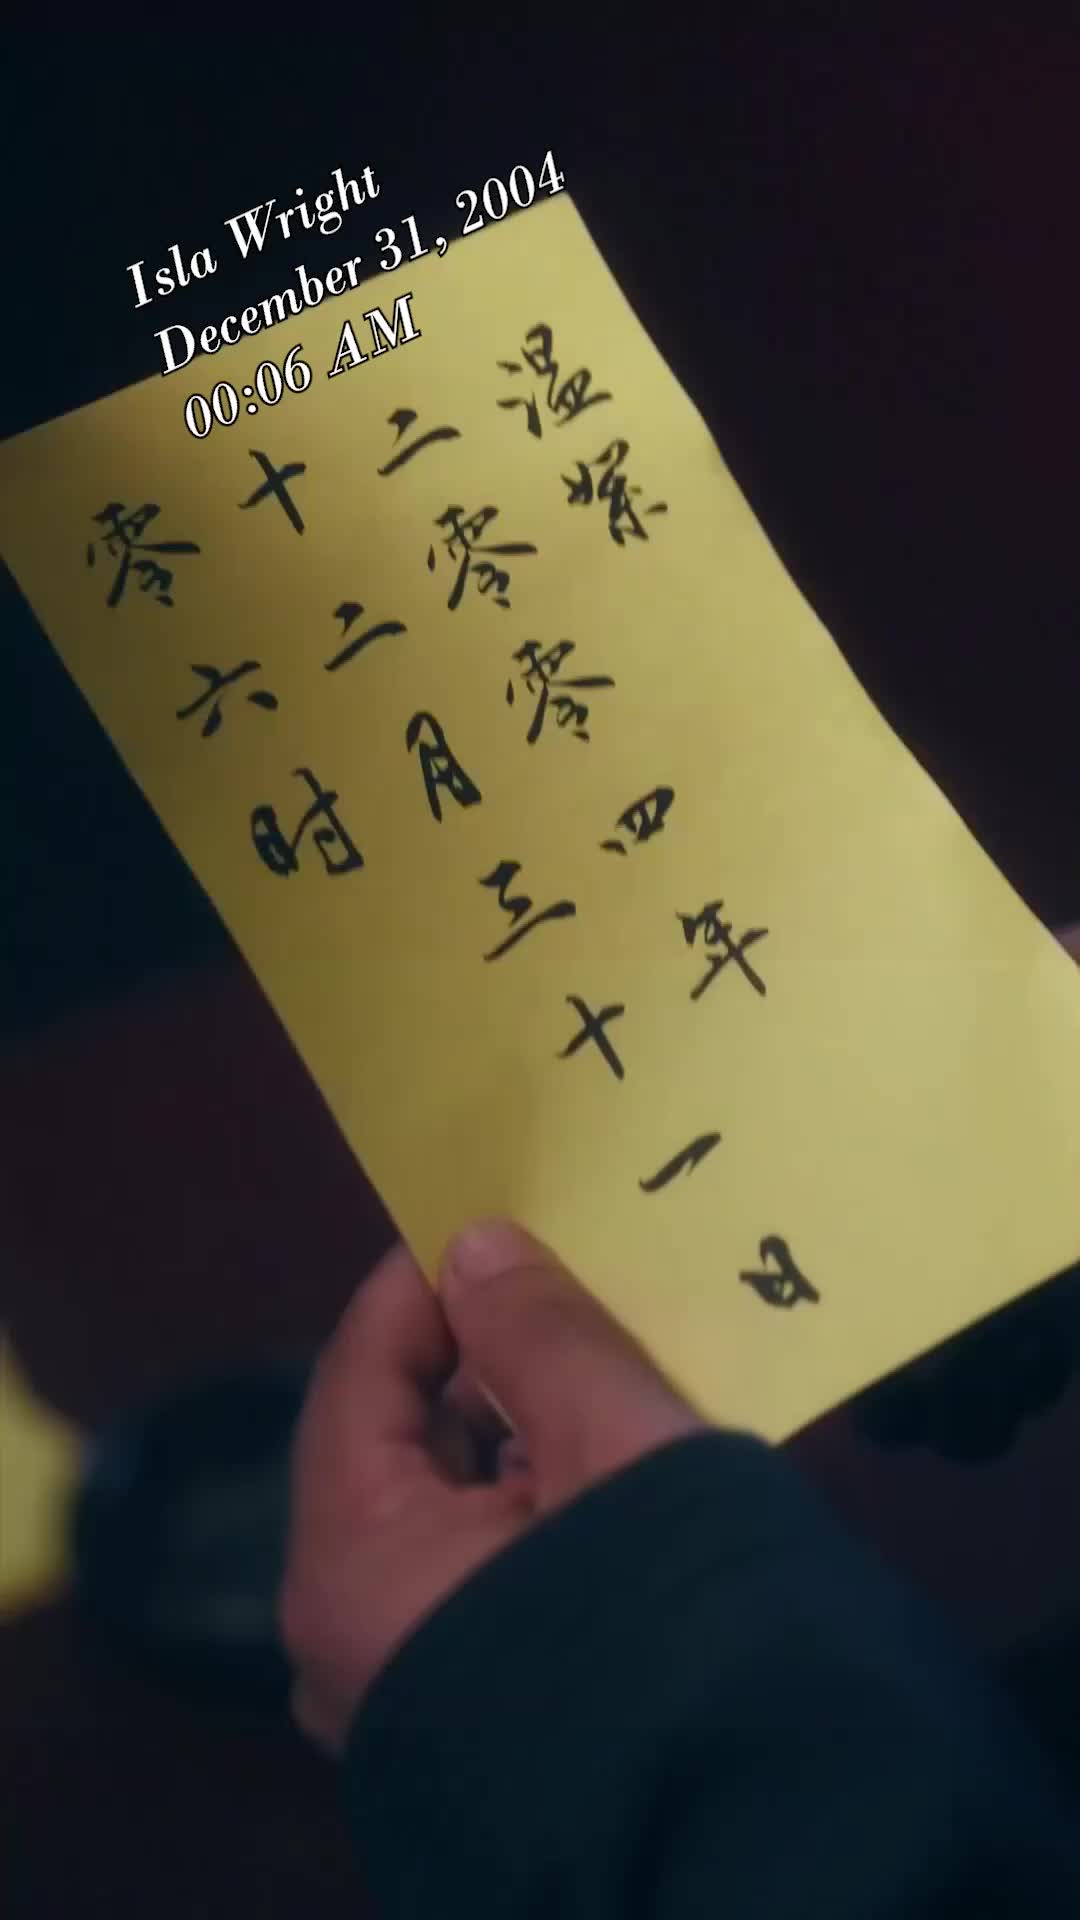 Isla Wright
December 31, 2004
00:06 AM
温嫘
二零零四年
十二月三十一日
零六时